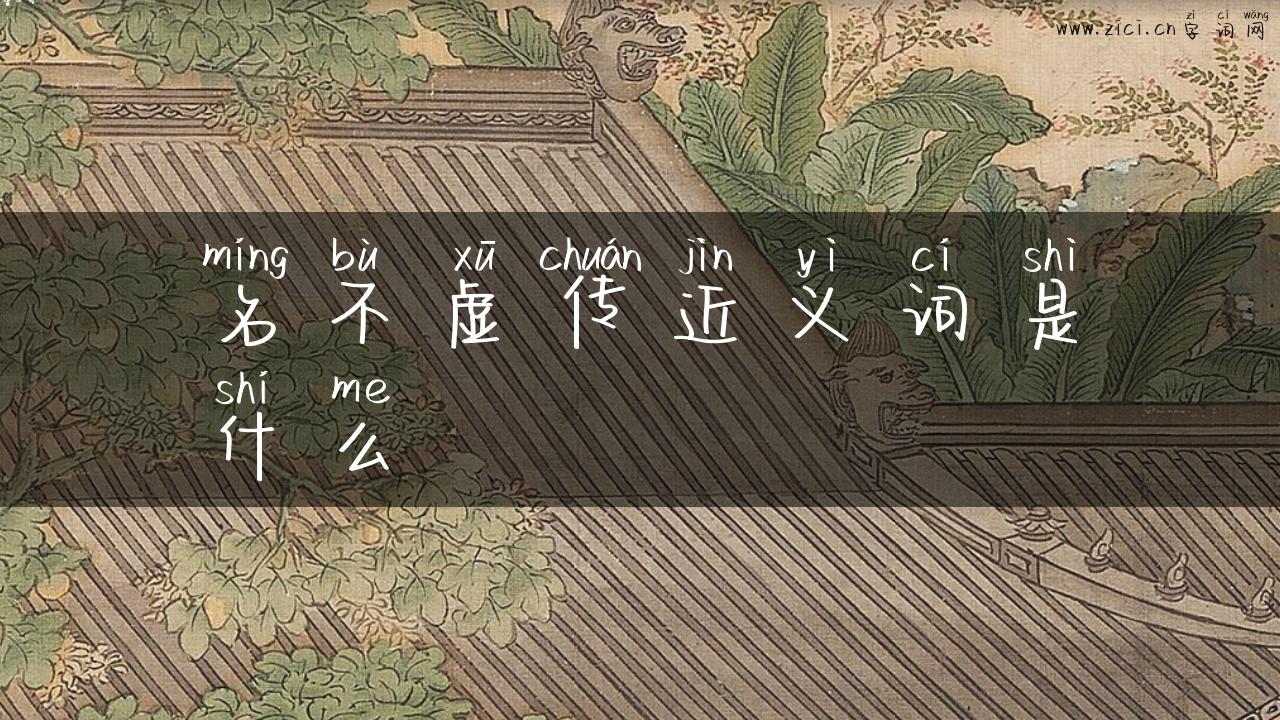 zì cí wǎng
www.zici.cn 字词网
míng bù xū chuán jìn yì cí shì
名不虚传近义词是
shí me
什么